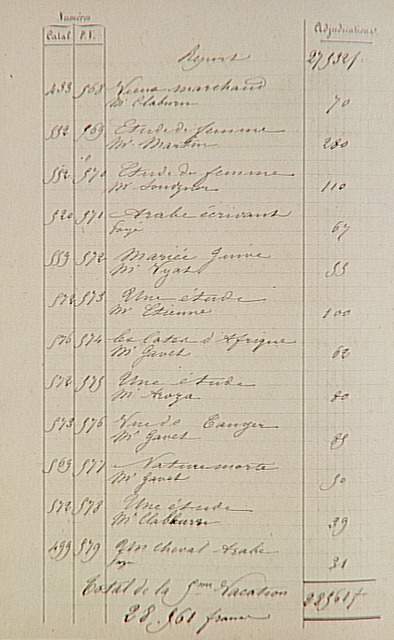 Numéros
Catal. P.V. Adjudications
Report 27532 f.
433 568 Vieux marchand
Mr Claburn 70
552 569 Etude de femme
Mr Martin 280
552 570 Etude de femme
Mr 110
520 571 Arabe écrivant
67
559 572 Mariée Juive
Mr Vyat 55
572 573 Une étude
Mr Etienne 100
576 574 Les côtes d'Afrique
Mr Gavet 62
572 575 Une étude
Mr Aroza 80
573 576 Vue de Tanger
Mr Gavet 85
563 577 Nature morte
Mr Gavet 50
572 578 Une étude
Mr Claburn 39
499 579 Un cheval Arabe
31
Total de la 5me Vacation 28561 f
28.561 francs